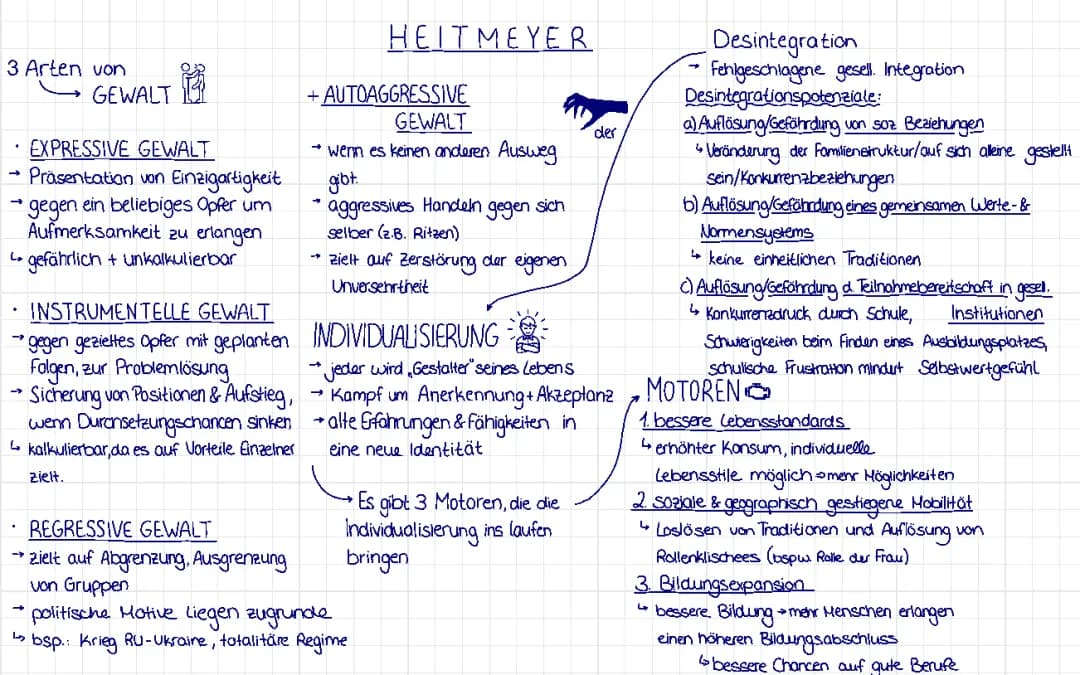 HEITMEYER
3 Arten von
→ GEWALT
· EXPRESSIVE GEWALT
→ Präsentation von Einzigartigkeit
→ gegen ein beliebiges Opfer um
Aufmerksamkeit zu erlangen
↳ gefährlich + unkalkulierbar
· INSTRUMENTELLE GEWALT
→ gegen gezieltes Opfer mit geplanten
Folgen, zur Problemlösung
→ Sicherung von Positionen & Aufstieg,
wenn Durchsetzungschancen sinken
↳ kalkulierbar, da es auf Vorteile Einzelner
zielt.
· REGRESSIVE GEWALT
→ zielt auf Abgrenzung, Ausgrenzung
von Gruppen
→ politische Motive liegen zugrunde
↳ bsp.: Krieg RU-Ukraine, totalitäre Regime
+ AUTOAGGRESSIVE
GEWALT
→ wenn es keinen anderen Ausweg
gibt.
→ aggressives Handeln gegen sich
selber (z.B. Ritzen)
→ zielt auf Zerstörung der eigenen
Unversehrtheit
der
INDIVIDUALISIERUNG
→ jeder wird „Gestalter" seines Lebens
→ Kampf um Anerkennung + Akzeptanz
→ alte Erfahrungen & Fähigkeiten in
eine neue Identität
→ Es gibt 3 Motoren, die die
Individualisierung ins laufen
bringen
Desintegration
→ Fehlgeschlagene gesell. Integration
Desintegrationspotenziale:
a) Auflösung/Gefährdung von soz Beziehungen
↳ Veränderung der Familienstruktur/auf sich alleine gestellt
sein/Konkurrenzbeziehungen
b) Auflösung/Gefährdung eines gemeinsamen Werte- &
Normensystems
↳ keine einheitlichen Traditionen
c) Auflösung/Gefährdung d. Teilnahmebereitschaft in gesel.
Institutionen
↳ Konkurrenzdruck durch Schule,
Schwierigkeiten beim Finden eines Ausbildungsplatzes,
schulische Frustration mindert Selbstwertgefühl
MOTOREN
1. bessere Lebensstandards
↳ erhöhter Konsum, individuelle
Lebensstile möglich ⇒ mehr Möglichkeiten
2. soziale & geographisch gestiegene Mobilität
↳ Loslösen von Traditionen und Auflösung von
Rollenklischees (bspw. Rolle der Frau)
3. Bildungsexpansion
↳ bessere Bildung → mehr Menschen erlangen
einen höheren Bildungsabschluss
↳ bessere Chancen auf gute Berufe